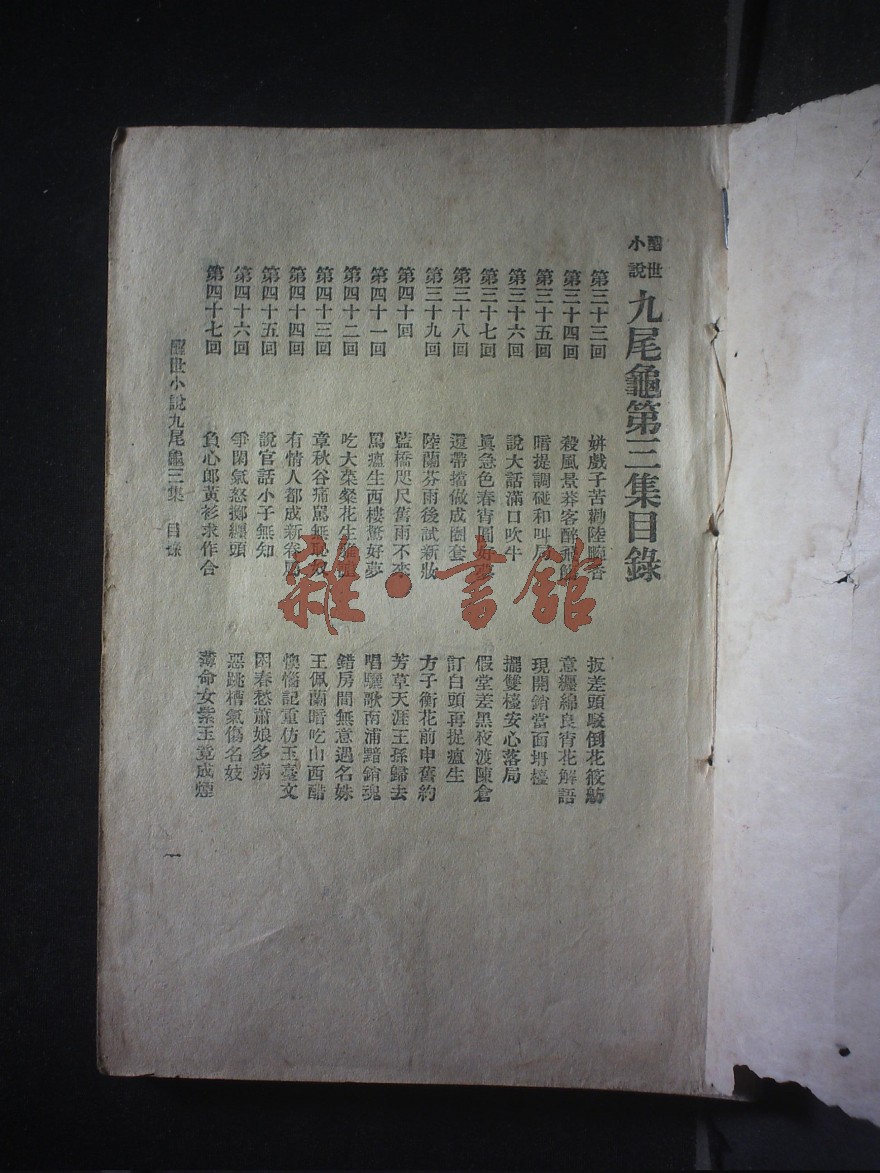 醒世小說 九尾龜第三集目錄
第三十三回 姘戲子苦勸陸麗春 扳差頭駁倒花筱舫
第三十四回 殺風景莽客醉飛 意纏綿良宵花解語
第三十五回 暗提調碰和叫局 現開銷當面坍檯
第三十六回 說大話滿口吹牛 擺雙檯安心落局
第三十七回 眞急色春宵圓好夢 假堂差黑夜渡陳倉
第三十八回 還帶擋做成圈套 訂白頭再捉瘟生
第三十九回 陸蘭芬雨後試新妝 方子衡花前申舊約
第四十回 藍橋咫尺舊雨不來 芳草天涯王孫歸去
第四十一回 罵瘟生西樓驚好夢 唱驪歌南浦黯銷魂
第四十二回 吃大菜粲花生 錯房間無意遇名姝
第四十三回 章秋谷痛罵無恥奴 王佩蘭暗吃山西醋
第四十四回 有情人都成新眷屬 懊惱記重仿玉臺文
第四十五回 說官話小子無知 困春愁蕭娘多病
第四十六回 爭閑氣怒擲纏頭 惡跳槽氣傷名妓
第四十七回 負心郎黃衫求作合 薄命女紫玉竟成煙
醒世小說九尾龜三集 目錄 一
雜·書館